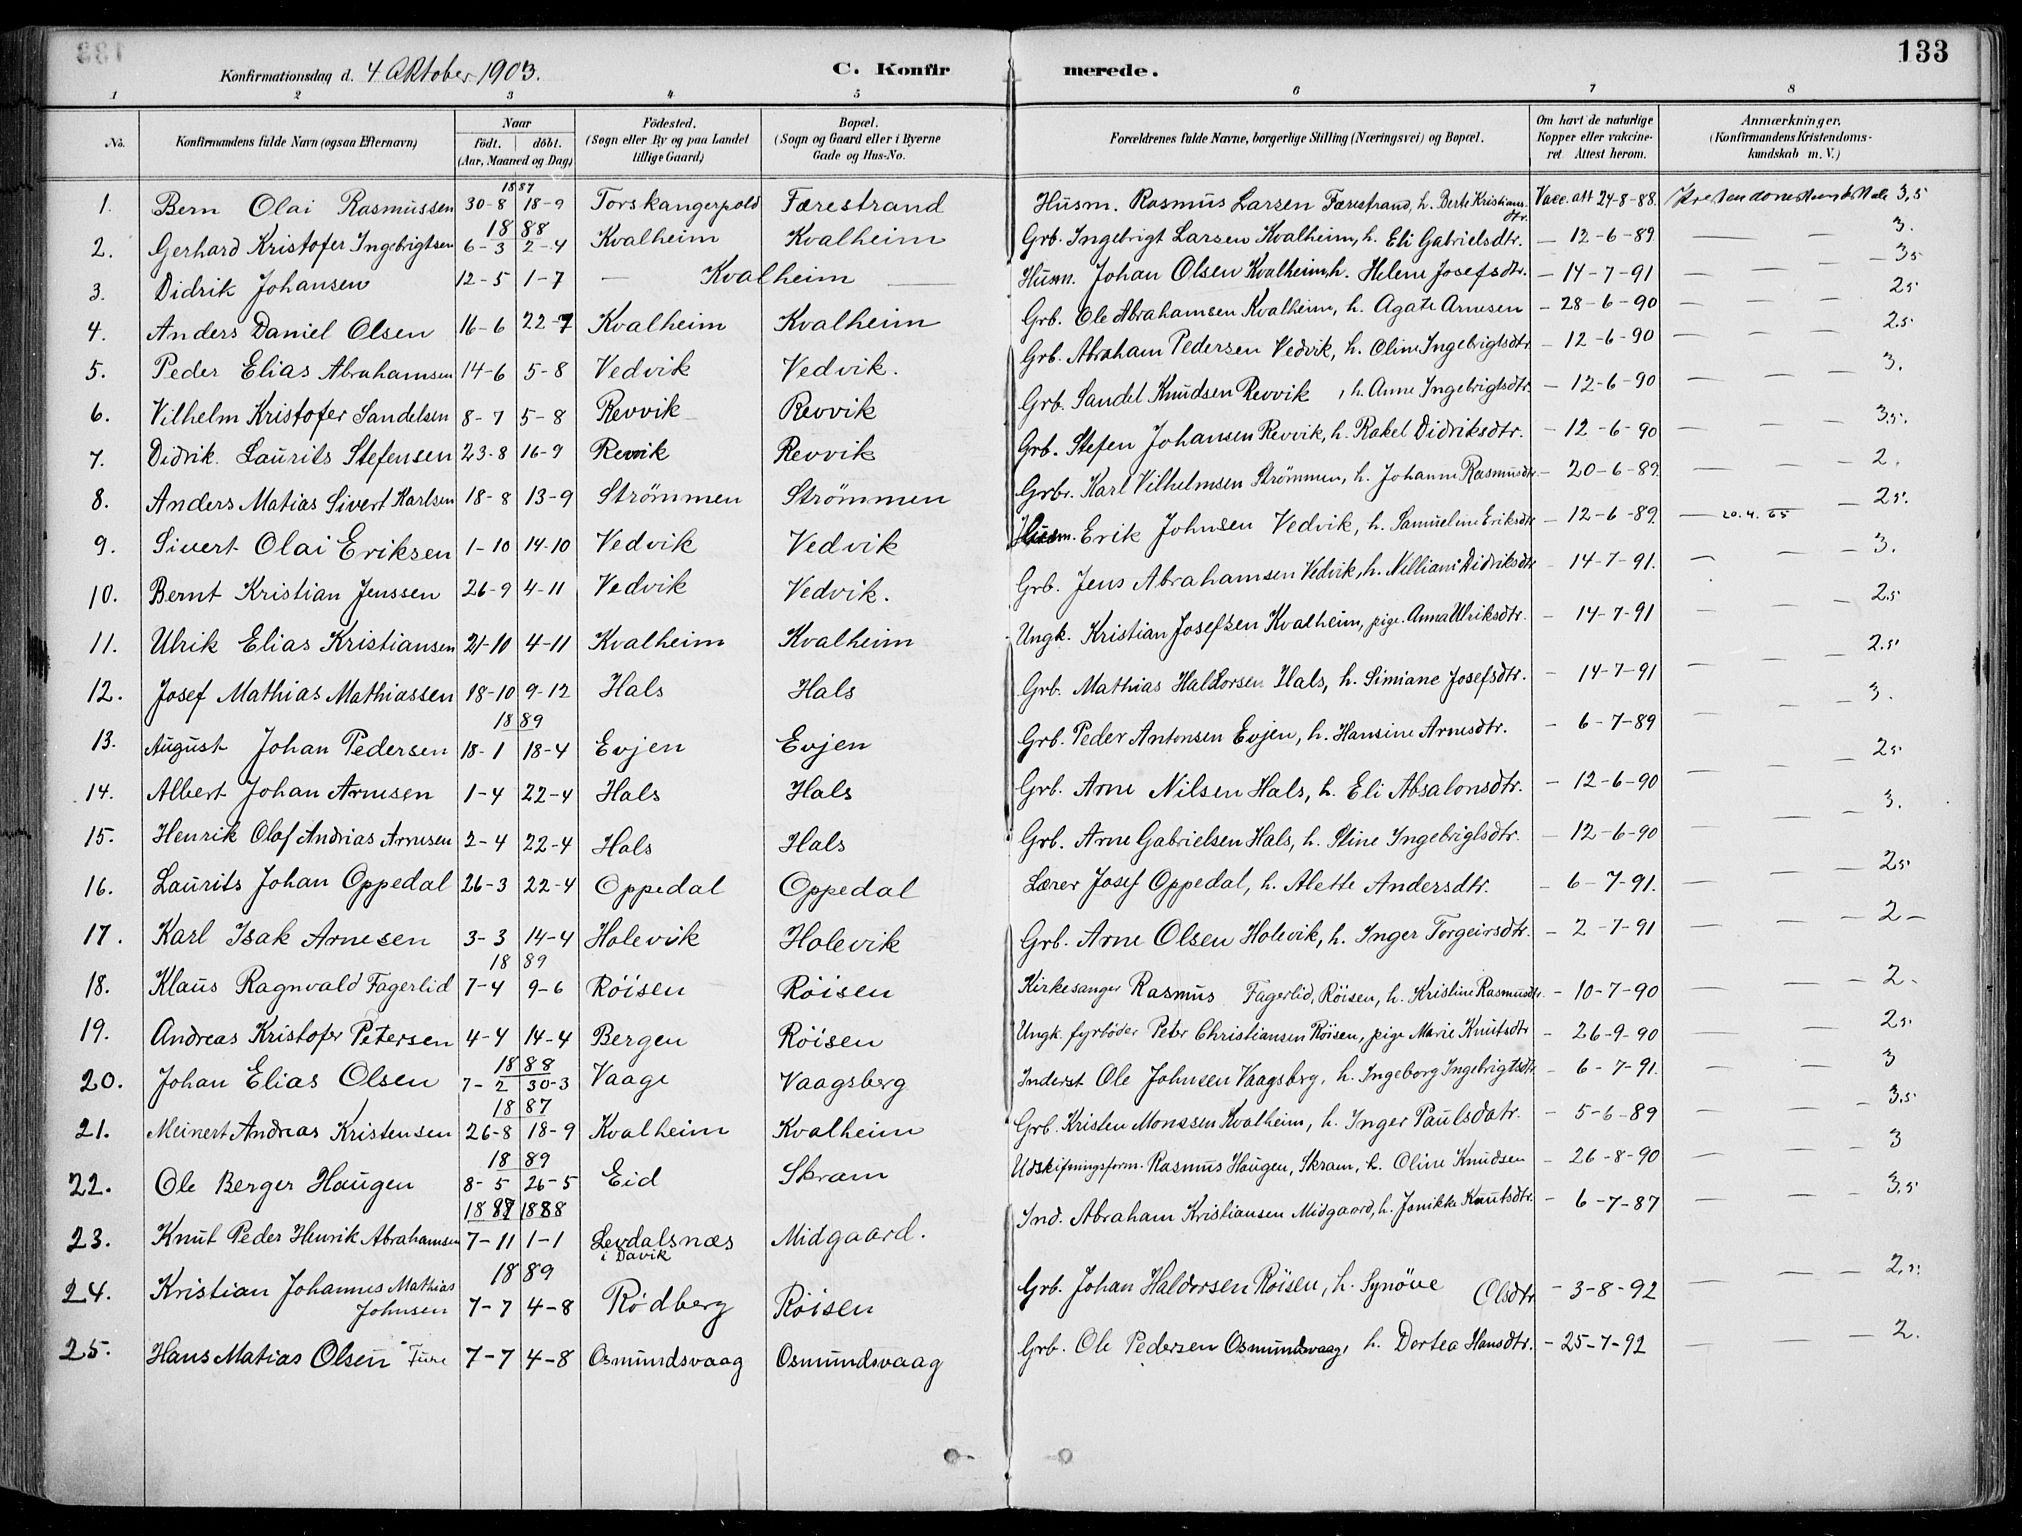 133
Konfirmationsdag d. 4 Oktober 1903. C. Konfirmerede.
1 2 3 4 5 6 7 8
No. | Konfirmandens fulde Navn (ogsaa Efternavn) | Naar födt. | döbt. (Aar, Maaned og Dag) | Födested. (Sogn eller By og paa Landet tillige Gaard) | Bopæl. (Sogn og Gaard eller i Byerne Gade og Hus-No.) | Forældrenes fulde Navne, borgerlige Stilling (Næringsvei) og Bopæl. | Om havt de naturlige Kopper eller vakcineret Attest herom. | Anmærkninger. (Konfirmandens Kristendomskundskab m. V.)
1887
1. Bern Olai Rasmussen 30-8 18-9 Torskangerpold Færestrand Husm. Rasmus Larsen Færestrand, h. Berte Kristiansdtr. Vacc. att 24-8-88. 3,5
1888
2. Gerhard Kristofer Ingebrigtsen 6-3 2-4 Kvalheim Kvalheim Grb. Ingebrigt Larsen Kvalheim, h. Eli Gabrielsdtr. — 12-6-89 — — 3.
3. Didrik Johansen 12-5 1-7 — Kvalheim — Husm. Johan Olsen Kvalheim, h. Helene Josefsdtr. — 14-7-91 — — — 35
4. Anders Daniel Olsen 16-6 22-7 Kvalheim Kvalheim Grb. Ole Abrahamsen Kvalheim, h. Agate Arnesen — 28-6-90 — — — 25
5. Peder Elias Abrahamsen 14-6 5-8 Vedvik Vedvik. Grb. Abraham Pedersen Vedvik, h. Oline Ingebrigtsdtr — 12-6-90 — — — 25
6. Vilhelm Kristofer Sandelsen 8-7 5-8 Revvik Revvik Grb. Sandel Knudsen Revvik, h. Anne Ingebrigtsdtr. — 12-6-90 — — — 3.
7. Didrik Laurits Stefensen 23-8 16-9 Revvik Revvik Grb. Stefen Johansen Revvik, h. Rakel Didriksdtr. — 12-6-90 — — — 35.
8. Anders Matias Sivert Karlsen 18-8 13-9 Strömmen Strömmen Grbr. Karl Vilhelmsen Strömmen, h. Johanne Rasmusdtr — 20-6-89 — — — 2.
9. Sivert Olai Eriksen 1-10 14-10 Vedvik Vedvik Husm. Erik Johnsen Vedvik, h. Samueline Eriksdtr — 12-6-89. — 20.4.65 — 25.
10. Bernt Kristian Jenssen 26-9 4-11 Vedvik Vedvik. Grb. Jens Abrahamsen Vedvik, h. Nilliane Didriksdtr — 14-7-91. — — — 3.
11. Ulrik Elias Kristiansen 21-10 4-11 Kvalheim Kvalheim Ungk. Kristian Josefsen Kvalheim, pige. Anna Ulriksdtr. — 14-7-91 — — — 2.5
12. Josef Mathias Mathiassen 18-10 9-12 Hals Hals Grb. Mathias Haldorsen Hals, h. Simiane Josefsdtr. — 14-7-91 — — — 2.5
1889
13. August Johan Pedersen 18-1 18-4 Evjen Evjen Grb. Peder Antonsen Evjen, h. Hansine Arnesdtr. — 6-7-89 — — — 3.
14. Albert Johan Arnesen 1-4 22-4 Hals Hals Grb. Arne Nilsen Hals, h. Eli Absalonsdtr. — 12-6-90 — — — 25
15. Henrik Olaf Andrias Arnesen 2-4 22-4 Hals Hals Grb. Arne Gabrielsen Hals, h. Stine Ingebrigtsdtr. — 12-6-90 — — — 3.
16. Laurits Johan Oppedal 26-3 22-4 Oppedal Oppedal Lærer Josef Oppedal, h. Alette Andersdtr. — 6-7-91. — — — 25
17. Karl Isak Arnesen 3-3 14-4 Holevik Holevik Grb. Arne Olsen Holevik, h. Inger Torgeirsdtr. — 2-7-91 — — — 2-
1889
18. Klaus Ragnvald Fagerlid 7-4 9-6 Röisen Röisen Kirkesanger Rasmus Fagerlid, Röisen, h. Kristine Rasmusdtr. — 10-7-90 — — — 2-
19. Andreas Kristofer Petersen 4-4 14-4 Bergen Röisen Ungk. fyrböder Peter Christiansen Röisen, pige Marie Knutsdtr — 26-9-90 — — — 25
1888
20. Johan Elias Olsen 7-2 30-3 Vaage Vaagsberg Inderst Ole Johnsen Vaagsberg, h. Ingeborg Ingebrigtsdtr — 6-7-91. — — — 3
1887
21. Meinert Andreas Kristensen 26-8 18-9 Kvalheim Kvalheim Grb. Kristen Monssen Kvalheim, h. Inger Paulsdatr. — 5-6-89 — — — 3,5
1889
22. Ole Berger Haugen 8-5 26-5 Eid Skram Udskifningsform. Rasmus Haugen, Skram, h. Oline Knudsen — 26-8-90 — — — 3
1887 1888
23. Knut Peder Henrik Abrahamsen 7-11 1-1 Levdalsnæs i Davik Midgaard. Ind. Abraham Kristiansen Midgaard, h. Jonikke Knutsdtr. — 6-7-87 — — — 3,5
1889
24. Kristian Johannes Mathias Johnsen 7-7 4-8 Rödberg Röisen Grb. Johan Haldorsen Röisen, h. Synöve Olsdtr — 3-8-92 — — — 2,5
25. Hans Matias Olsen Fure 7-7 4-8 Osmundsvaag Osmundsvaag Grb. Ole Pedersen Osmundsvaag, h. Dortea Hansdtr. — 25-7-92 — — — 2.